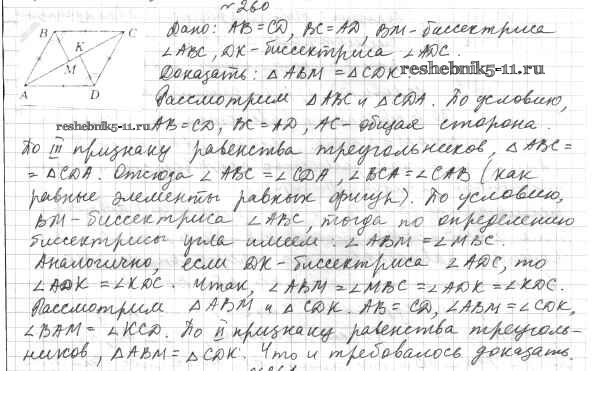 № 260
B C K M A D
Дано: AB=CD, BC=AD, BM-биссектриса
∠ABC, DK-биссектриса ∠ADC.
Доказать: △ABM = △CDK. reshebnik5-11.ru
Рассмотрим △ABC и △CDA. По условию,
reshebnik5-11.ru AB=CD, BC=AD, AC-общая сторона.
По III признаку равенства треугольников, △ABC=
= △CDA. Отсюда ∠ABC = ∠CDA, ∠BCA = ∠CAB (как
равные элементы равных фигур). По условию,
BM-биссектриса ∠ABC, тогда по определению
биссектрисы угла имеем: ∠ABM = ∠MBC.
Аналогично, если DK-биссектриса ∠ADC, то
∠ADK = ∠KDC. Итак, ∠ABM = ∠MBC = ∠ADK = ∠KDC.
Рассмотрим △ABM и △CDK. AB = CD, ∠ABM = ∠CDK,
∠BAM = ∠KCD. По II признаку равенства треуголь-
ников, △ABM = △CDK. Что и требовалось доказать.